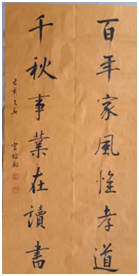 百年家風惟孝道
千秋事業在讀書